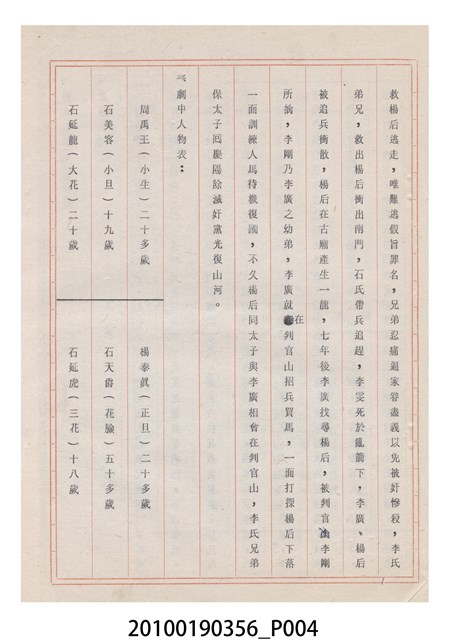 救楊后逃走，唯難逃假旨罪名，兄弟忍痛逼家眷盡義以免被奸慘殺，李氏
弟兄，救出楊后衝出南門，石氏帶兵追趕，李雯死於亂箭下，李廣、楊后
被追兵衝散，楊后在古廟產生一龍，七年後李廣找尋楊后，被判官山李剛
所擒，李剛乃李廣之幼弟，李廣就在判官山招兵買馬，一面打探楊后下落
一面訓練人馬待機復國，不久楊后同太子與李廣相會在判官山，李氏兄弟
保太子回慶陽除滅奸黨光復山河。
劇中人物表：
周禹王（小生）二十多歲
楊泰真（正旦）二十多歲
石美容（小旦）十九歲
石天爵（花臉）五十多歲
石延龍（大花）二十歲
石延虎（三花）十八歲
20100190356_P004